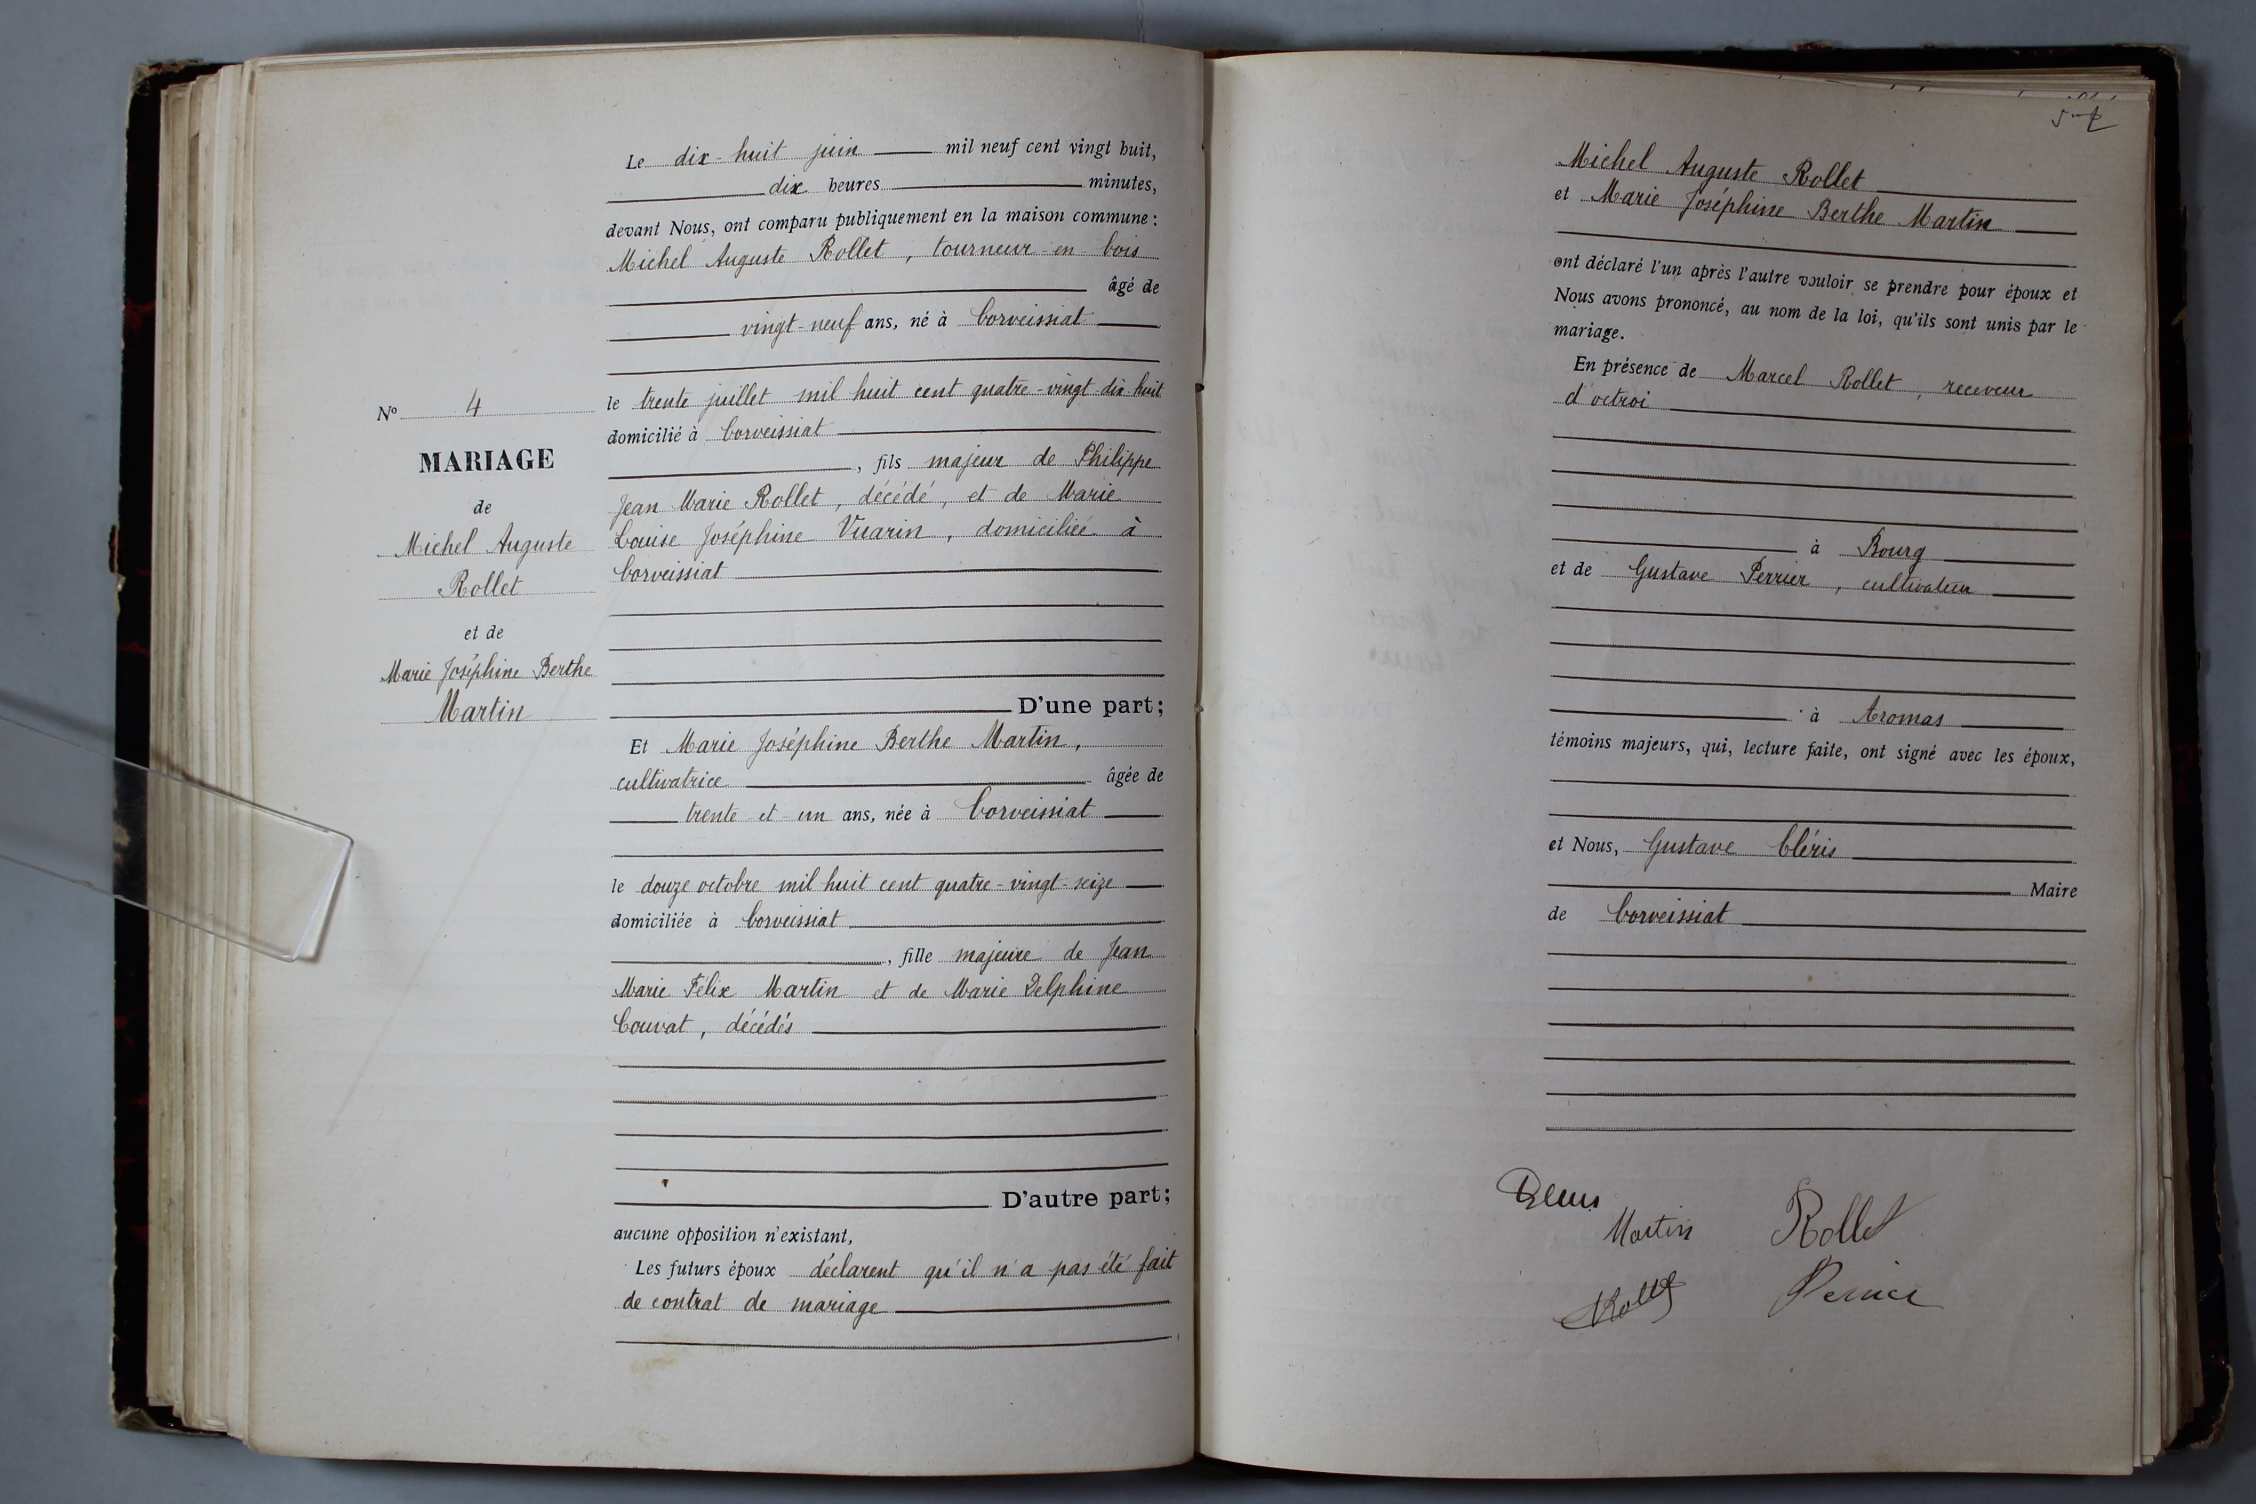 Le dix-huit juin mil neuf cent vingt huit,
dix heures minutes,
devant Nous, ont comparu publiquement en la maison commune :
Michel Auguste Rollet, tourneur en bois
âgé de
vingt-neuf ans, né à Corveissiat
le trente juillet mil huit cent quatre-vingt dix-huit
domicilié à Corveissiat
, fils majeur de Philippe
Jean Marie Rollet, décédé, et de Marie
Louise Joséphine Vuarin, domiciliée à
Corveissiat
D'une part;
Et Marie Joséphine Berthe Martin,
cultivatrice âgée de
trente et un ans, née à Corveissiat
le douze octobre mil huit cent quatre-vingt-seize
domiciliée à Corveissiat
, fille majeure de Jean
Marie Felix Martin et de Marie Delphine
Couvat, décédés
D'autre part;
aucune opposition n'existant,
Les futurs époux déclarent qu'il n'a pas été fait
de contrat de mariage
No 4
MARIAGE
de
Michel Auguste
Rollet
et de
Marie Joséphine Berthe
Martin
Michel Auguste Rollet
et Marie Joséphine Berthe Martin
ont déclaré l'un après l'autre vouloir se prendre pour époux et
Nous avons prononcé, au nom de la loi, qu'ils sont unis par le
mariage.
En présence de Marcel Rollet, receveur
d'octroi
à Bourg
et de Gustave Perrier, cultivateur
à Aromas
témoins majeurs, qui, lecture faite, ont signé avec les époux,
et Nous, Gustave Cléris
Maire
de Corveissiat
Martin Rollet
Rollet Perrier